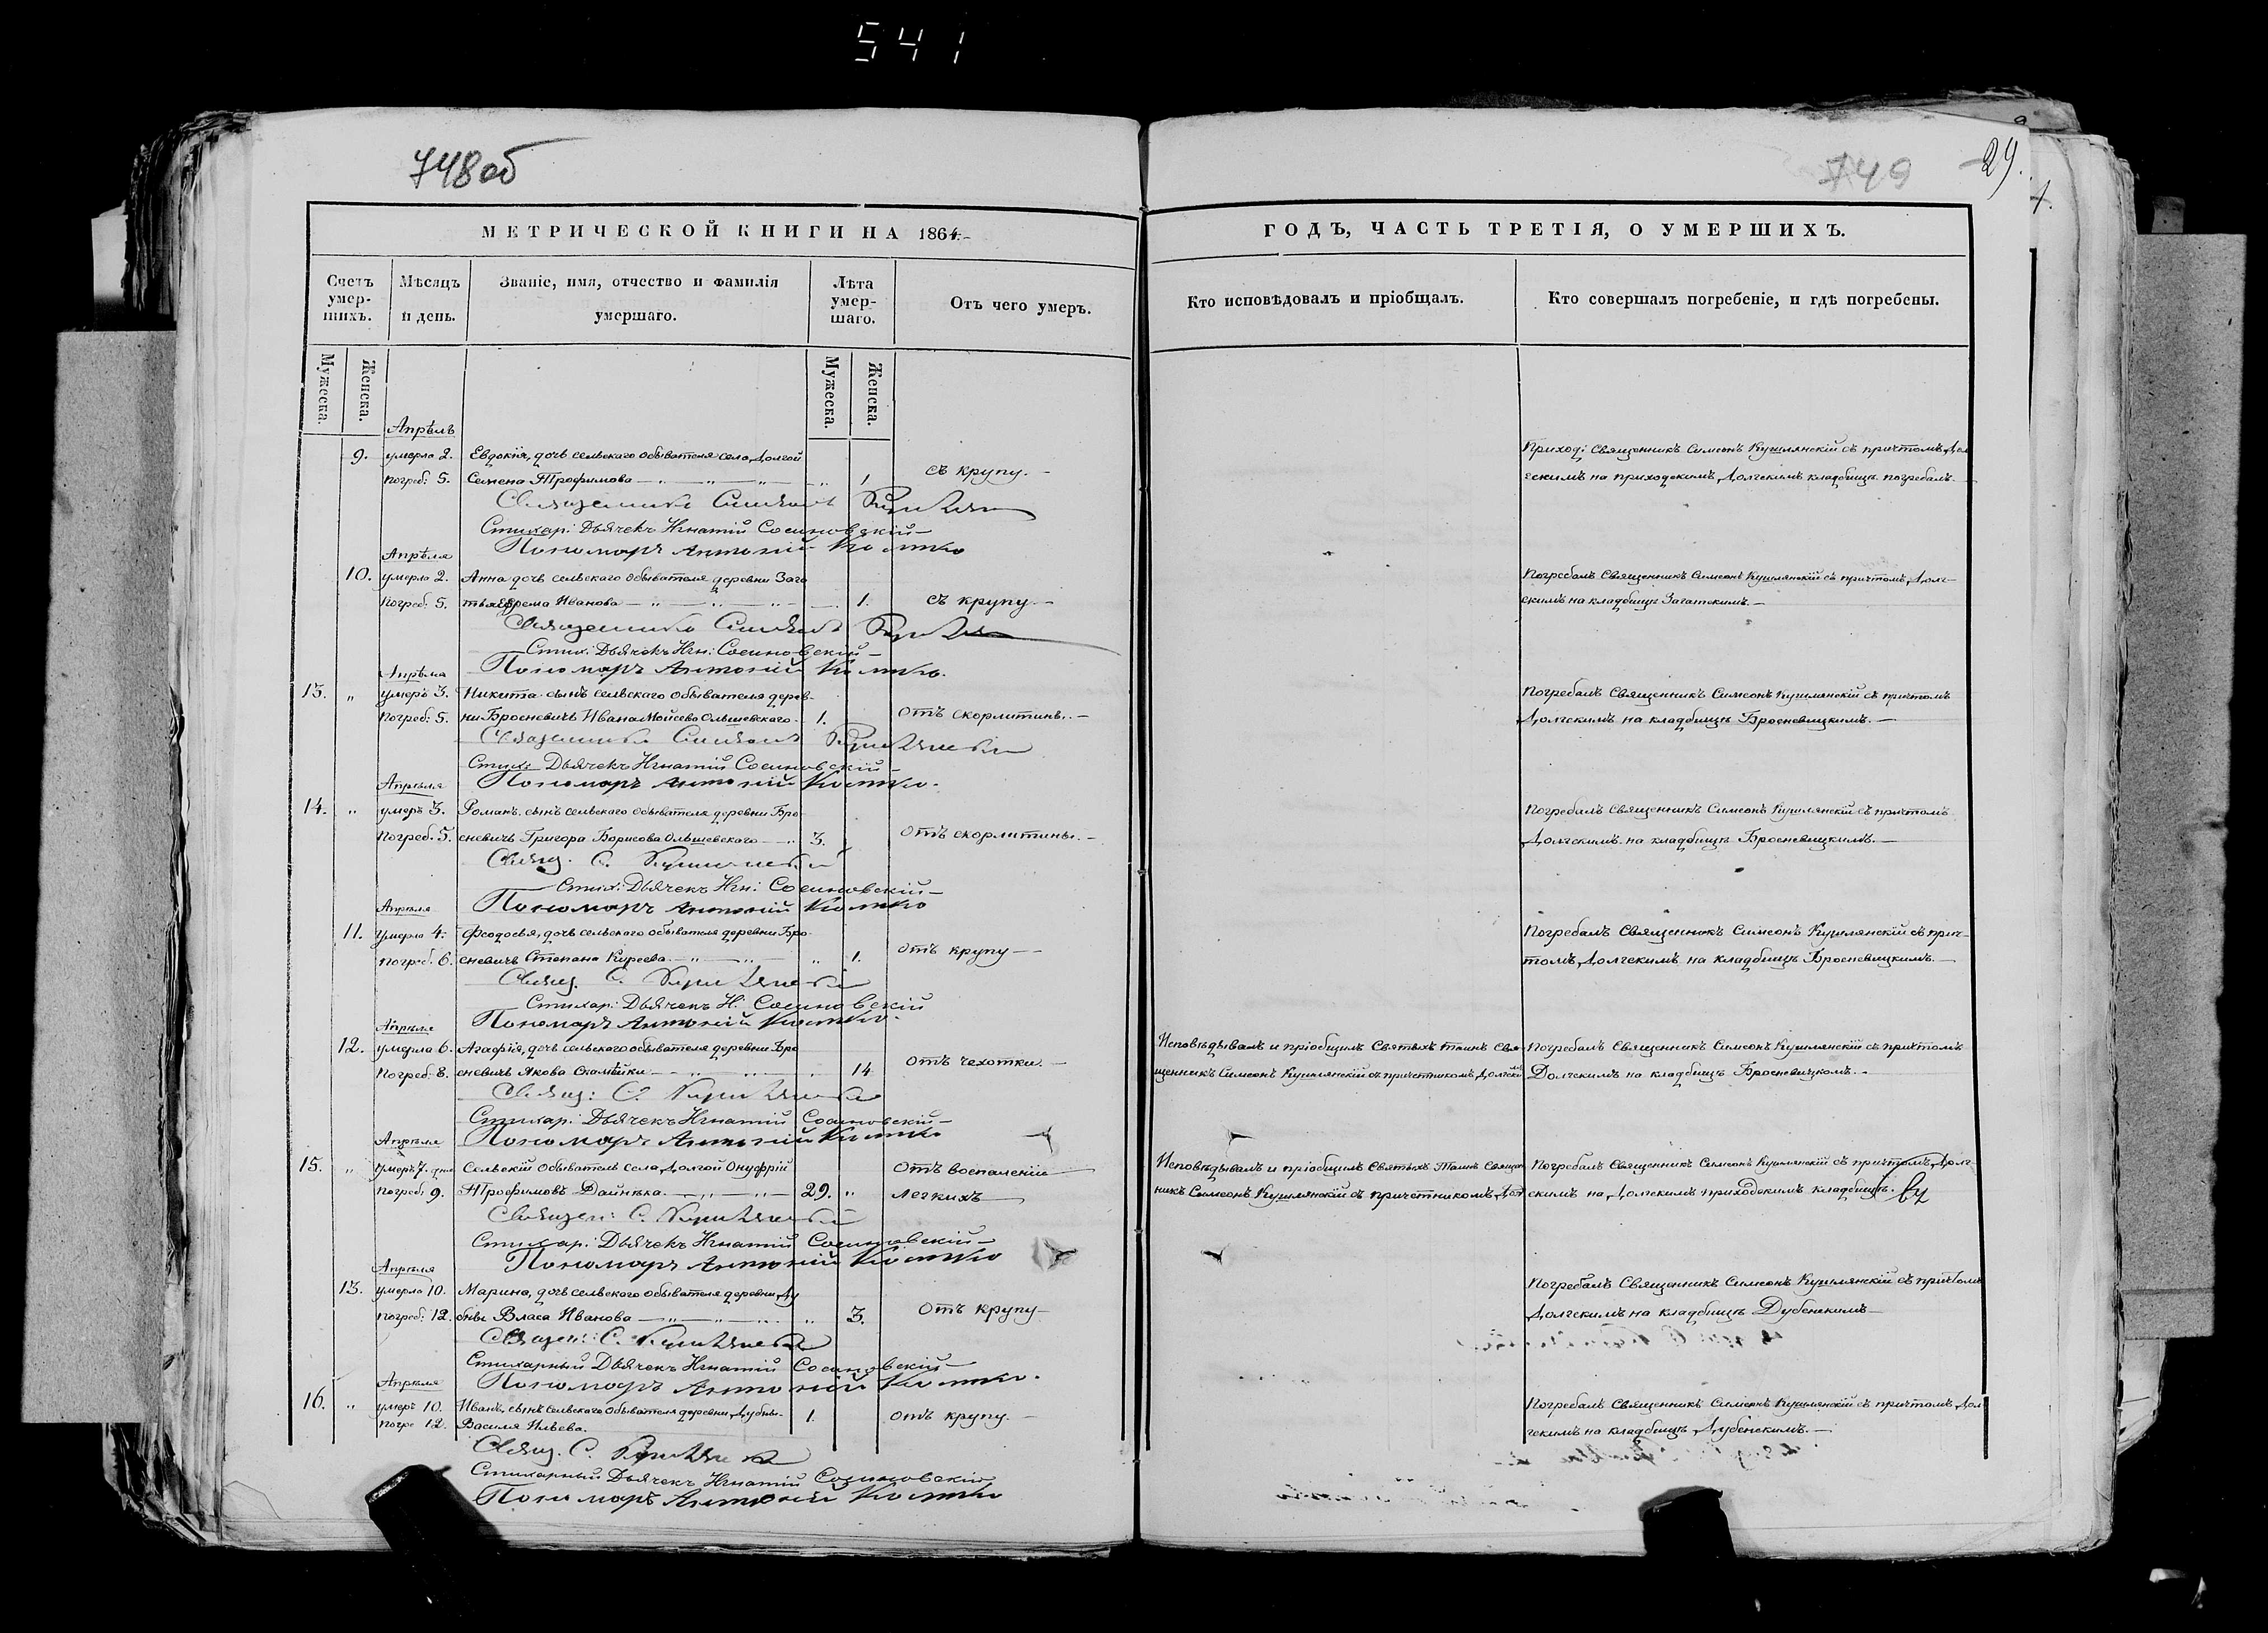 541
748об
749
29.
МЕТРИЧЕСКОЙ КНИГИ НА 1864.
ГОДЪ, ЧАСТЬ ТРЕТІЯ, О УМЕРШИХЪ.
Счетъ умер-шихъ.
Мѣсяцъ и день.
Званіе, имя, отчество и фамилія умершаго.
Лѣта умер-шаго.
Отъ чего умеръ.
Кто исповѣдовалъ и пріобщалъ.
Кто совершалъ погребеніе, и гдѣ погребены.
Мужеска.
Женска.
Мужеска.
Женска.
Апрѣль
9. умерла 2. Евдокія, дочь сельскаго обывателя села Долгой
погреб: 5. Семена Трофимова 1. съ крупу.
Приход: Священникъ Симеонъ Кушлянскій съ причтомъ Дол
гскимъ на приходскимъ Долгскимъ кладбищѣ погребалъ.
Священникъ Симеонъ
Стихар: Дьячекъ Игнатій Сосиновскій
Пономарь Антоній Костко
Апрѣля
10. умерла 2. Анна дочь сельскаго обывателя деревни Зага
погреб: 5. тья Ефрема Иванова 1. съ крупу.
Погребалъ Священникъ Симеонъ Кушлянскій съ причтомъ Долг-
скимъ на кладбищѣ Загатскимъ.
Священникъ Симеонъ
Стих: Дьячекъ Игн: Сосиновскій
Пономарь Антоній Костко.
Апрѣля
13. " умеръ 3. Никита сынъ сельскаго обывателя дерев-
погреб: 5. ни Броcневичъ Ивана Мойсеева Ольшевскаго 1. отъ скорлатины.
Погребалъ Священникъ Симеонъ Кушлянскій съ причтомъ
Долгскимъ на кладбищѣ Бросневицкимъ.
Священникъ Симеонъ Кушлянскій
Стих: Дьячекъ Игнатій Сосиновскій
Пономарь Антоній Костко.
Апрѣля
14. " умеръ 3. Романъ сынъ сельскаго обывателя деревни Бро
погреб. 5. сневичъ Григора Борисова Ольшевскаго 3. отъ скорлатины.
Погребалъ Священникъ Симеонъ Кушлянскій съ причтомъ
Долгскимъ на кладбищѣ Бросневицкимъ.
Свящ. С. Кушлянскій
Стих: Дьячекъ Игн: Сосиновскій
Пономарь Антоній Костко
Апрѣля
11. умерла 4. Феодосья, дочь сельскаго обывателя деревни Бро
погреб. 6. сневичъ Степана Киреева " 1. отъ крупу
Погребалъ Священникъ Симеонъ Кушлянскій съ прич-
томъ Долгскимъ на кладбищѣ Бросневицкимъ.
Свящ. С. Кушлянскій
Стихар: Дьячекъ И: Сосиновскій
Пономарь Антоній Костко.
Апрѣля
12. умерла 6. Агафія, дочь сельскаго обывателя деревни Бро
погреб: 8. сневичъ Якова 14 отъ чехотки.
Исповѣдывалъ и пріобщилъ Святыхъ таинъ Свя-
щенникъ Симеонъ Кушлянскій съ причетникомъ Долгским
Погребалъ Священникъ Симеонъ Кушлянскій съ причтомъ
Долгскимъ на кладбищѣ Бросневицкомъ.
Свящ: С. Кушлянскій
Стихар: Дьячекъ Игнатій Сосиновскій
Пономарь Антоній Костко
Апрѣля
15. " умеръ 7. дня Сельскій обыватель села Долгой Онуфрій
погреб: 9. Трофимовъ Дайнека 29. " отъ воспаленія легкихъ
Исповѣдывалъ и пріобщилъ Святыхъ Таинъ Священ
никъ Симеонъ Кушлянскій съ причетникомъ Дол
Погребалъ Священникъ Симеонъ Кушлянскій съ причтомъ Долг-
скимъ на Долгскимъ приходскимъ кладбищѣ.
Священ: С. Кушлянскій
Стихар: Дьячекъ Игнатій Сосиновскій
Пономарь Антоній Костко
Апрѣля
13. умерла 10. Марина, дочь сельскаго обывателя деревни Ду
погреб: 12. бны Власа Иванова " 3. отъ крупу
Погребалъ Священникъ Симеонъ Кушлянскій съ причтомъ
Долгскимъ на кладбищѣ Дубенскимъ
Священ: С. Кушлянскій
Стихарный Дьячекъ Игнатій Сосиновскій
Пономарь Антоній Костко.
Апрѣля
16. " умеръ 10. Иванъ, сынъ сельскаго обывателя деревни Дубны
погре 12. Василя Ильева. 1. отъ крупу.
Погребалъ Священникъ Симеонъ Кушлянскій съ причтомъ Дол
гскимъ на кладбищѣ Дубенскимъ.
Свящ. С. Кушлянскій
Стихарный Дьячекъ Игнатій Сосиновскій
Пономарь Антоній Костко